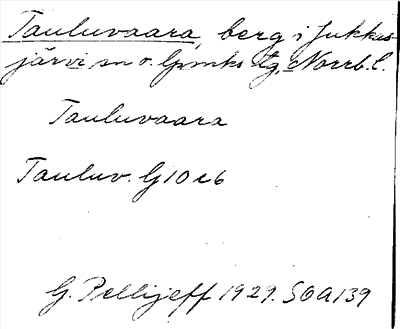 Tauluvaara, berg i Jukkas-
järvi sn o. lpmks tg, Norrb. l.
Tauluvaara
Tauluv. G10c6
G. Pellijeff 1929. SOA139